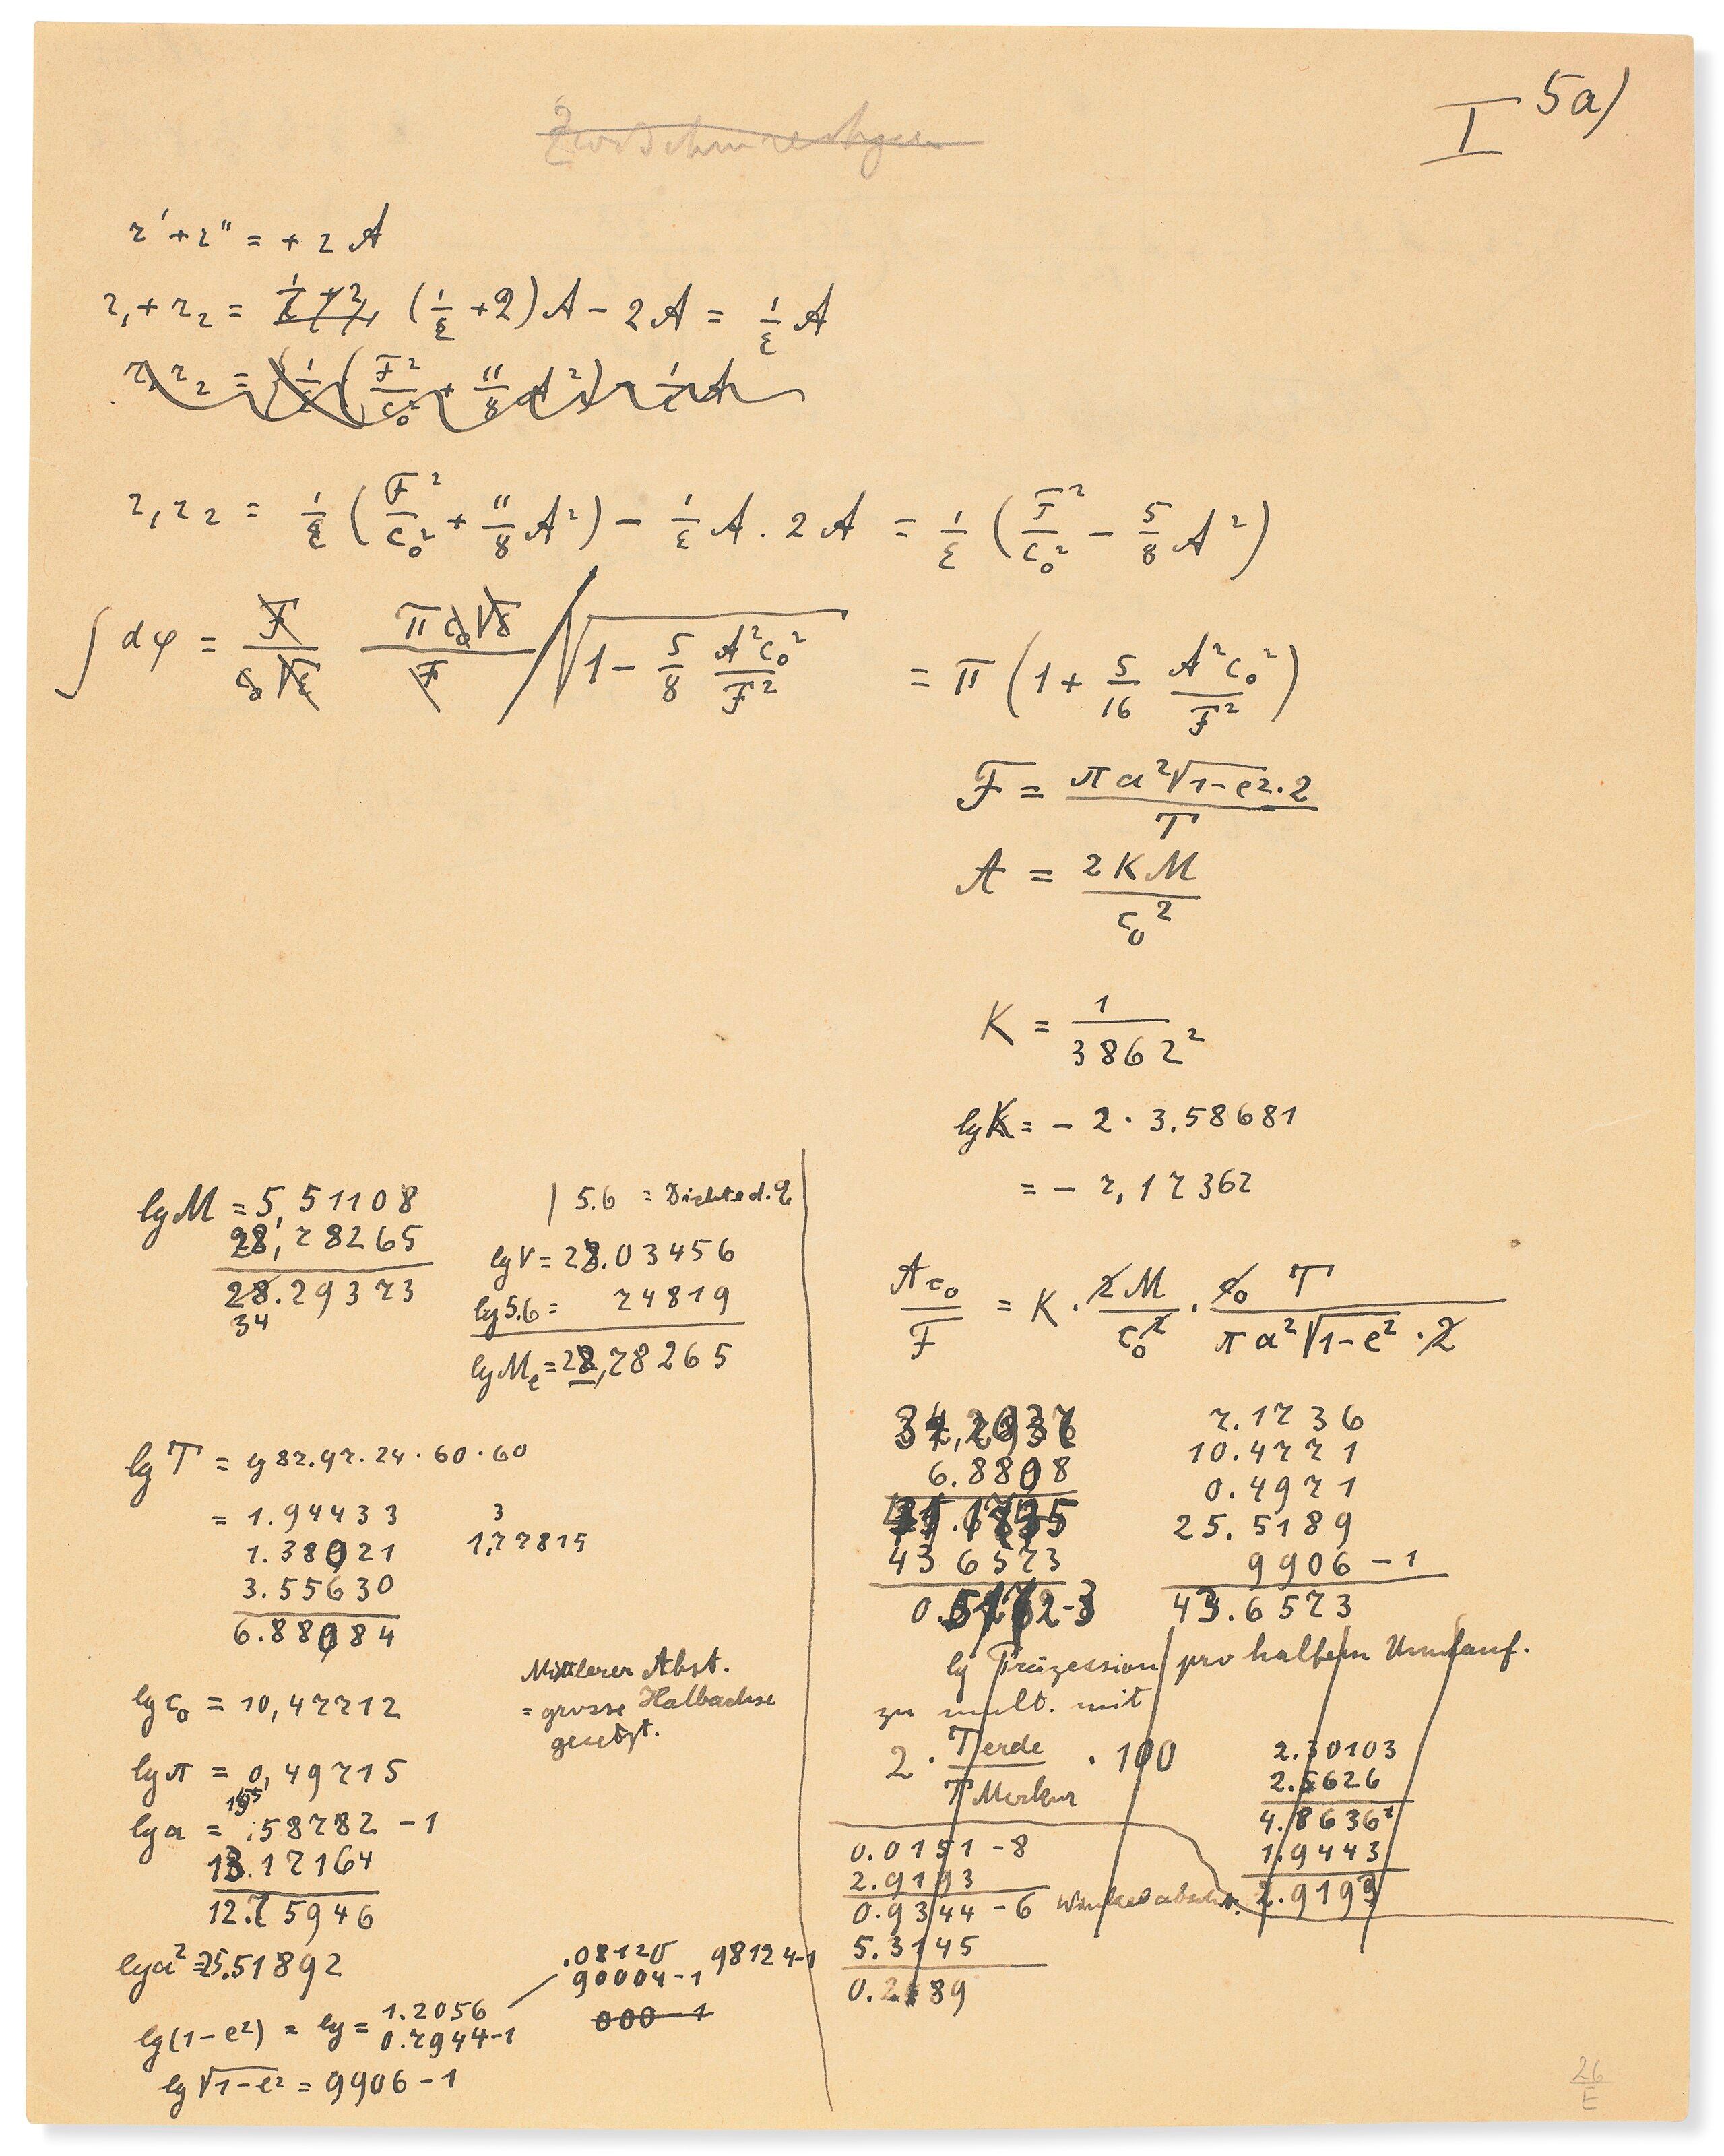 I 5a)
r' + r'' = + 2A
r₁ + r₂ = (1/ε + 2)A − 2A = 1/ε A
r₁ r₂ = 1/ε (F²/c₀² + 11/8 A²) − 1/ε A
r₁ r₂ = 1/ε (F²/c₀² + 11/8 A²) − 1/ε A . 2A = 1/ε (F²/c₀² − 5/8 A²)
∫ dφ = F/(c₀√ε) π c₀√ε/F / √(1 − 5/8 A²c₀²/F²) = π (1 + 5/16 A²c₀²/F²)
F = πa²√(1−e²) · 2 / T
A = 2KM / c₀²
K = 1 / 3862²
lg K = − 2 · 3.58681
= − 7,17362
lg M = 5,51108
28,78265
34.29373
| 5.6 = Dichte d.
lg V = 28.03456
lg 5.6 = 74819
lg Mₑ = 28,78265
lg T = lg 87.97.24 · 60 · 60
= 1.94433
1.38021
3.55630
6.88084
3
1,77815
lg c₀ = 10,47712
Mittlerer Abst.
= grosse Halbachse
gesetzt.
lg π = 0,49715
lg a = ,58782 − 1
13.17164
12.75946
lg a² = 25.51892
lg(1−e²) = lg = 1.2056
0.7944-1
.08120
90004-1 98124-1
000 1
lg √(1−e²) = 9906 − 1
Ac₀/F = K · 2M/c₀² · c₀ T / πa²√(1−e²) · 2
6.8808
43 6573
7.1736
10.4771
0.4971
25.5189
9906 − 1
43.6573
lg Präzession pro halben Umlauf.
zu mult. mit
2 · T Erde / T Merkur · 100
2.30103
2.5626
4.8636
1.9443
2.9193
0.0151 -8
2.9193
0.9344 -6
5.3145
26
E